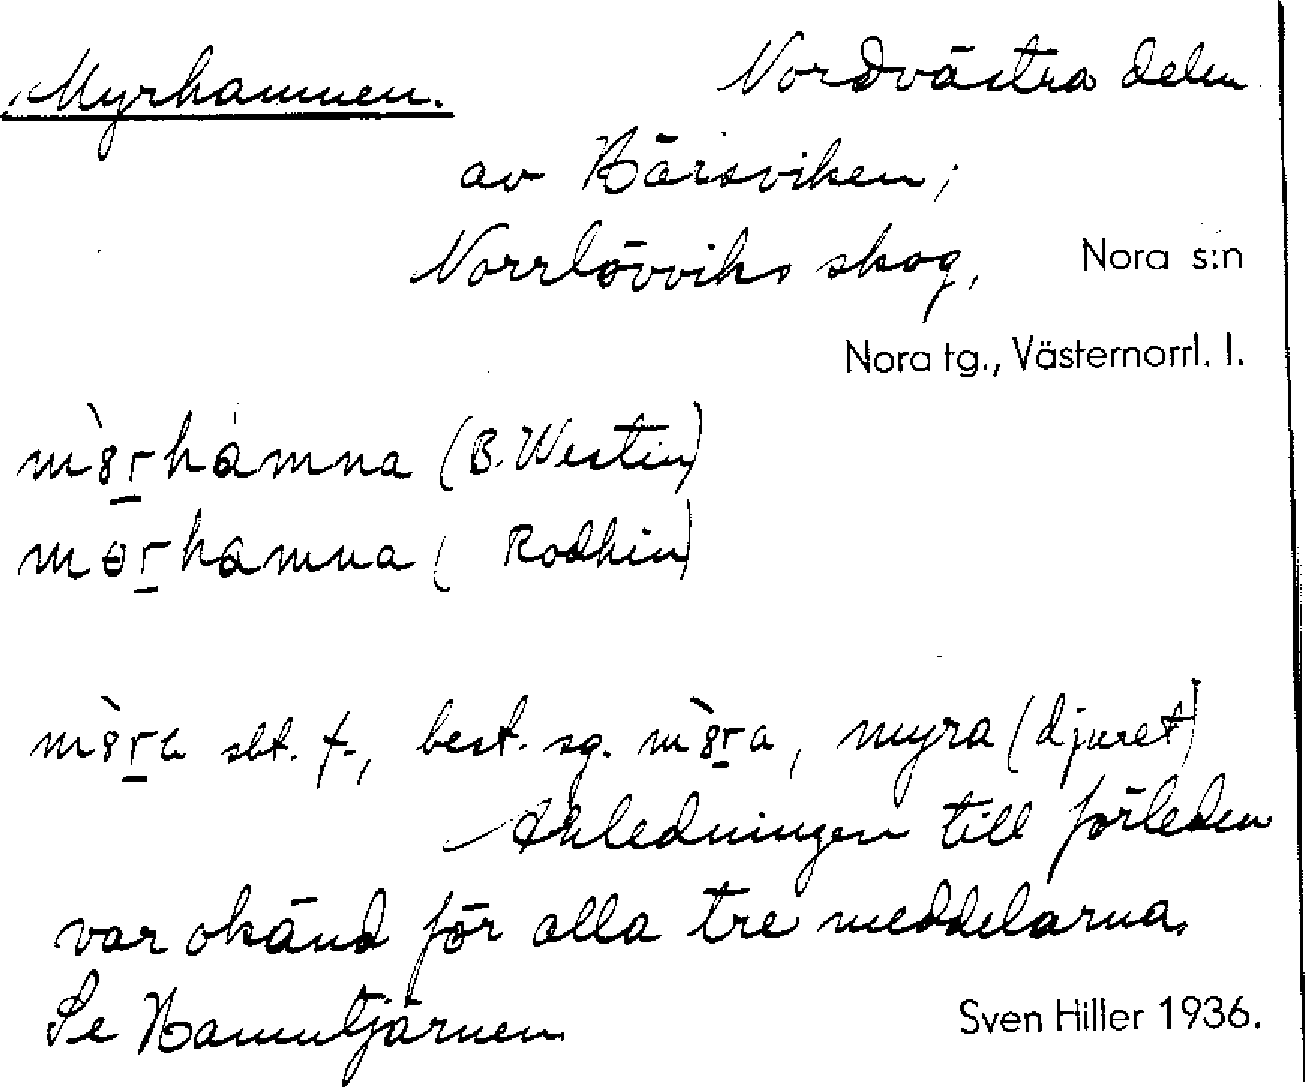 Myrhamnen. Nordvästra delen
av Härsviken;
Norrlövviks skog, Nora s:n
Nora tg., Västernorrl. l.
(B. Westin)
(Rodhin)
sbt. f., best. sg. myra (djuret)
Anledningen till förleden
var okänd för alla tre meddelarna.
Se Hamntjärnen
Sven Hiller 1936.